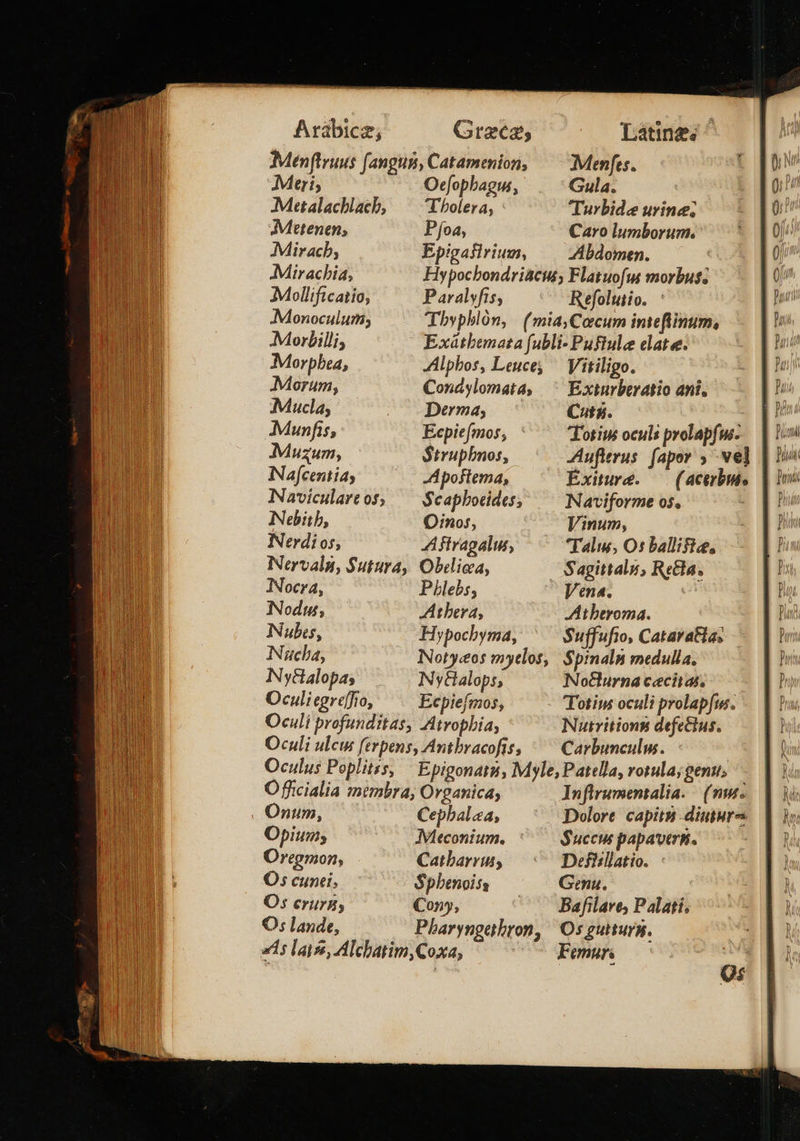 Arabicæ, Græcæ, Latinæ.
Menſtruus ſanguis, Catamenion, Menſes.
Meri, Oeſophagus, Gula.
Metalachlach, Tholera, Turbidæ urinæ.
Metenen, Pſoa, Caro lumborum.
Mirach, Epigaſtrium, Abdomen.
Mirachia, Hypochondriacus, Flatuoſus morbus.
Mollificatio, Paralyſis, Reſolutio.
Monoculum, Thyphlòn, (mia, Cœcum inteſtinum,
Morbilli, Exáthemata ſubli- Puſtulæ elatæ.
Morphea, Alphos, Leuce, Vitiligo.
Morum, Condylomata, Exturberatio ani.
Mucla, Derma, Cutis.
Munfis, Ecpieſmos, Totius oculi prolapſus.
Muzum, Struphnos, Auſterus ſapor, vel
Naſcentia, Apoſtema, Exituræ. (acerbus.
Naviculare os, Scaphoeides, Naviforme os.
Nebith, Oinos, Vinum,
Nerdi os, Aſtragalus, Talus, Os balliſtæ.
Nervalis, Sutura, Obeliæa, Sagittalis, Recta.
Nocra, Phlebs, Vena.
Nodus, Athera, Atheroma.
Nubes, Hypochyma, Suffuſio, Cataracta.
Nucha, Notyæos myelos, Spinalis medulla.
Nyctalopa, Nyctalops, Nocturna cæcitas.
Oculi egreſſio, Ecpieſmos, Totius oculi prolapſus.
Oculi profunditas, Atrophia, Nutritionis defectus.
Oculi ulcus ſerpens, Anthracoſis, Carbunculus.
Oculus Poplitis, Epigonatis, Myle, Patella, rotula, genu,
Officialia membra, Organica, Inſtrumentalia. (nus.
Onum, Cephalæa, Dolore capitis diutur-
Opium, Meconium. Succus papaveris.
Oregmon, Catharrus, Deſtillatio.
Os cunei, Sphenois, Genu.
Os cruris, Cony, Baſilare, Palati.
Os lande, Pharyngethron, Os gutturis.
Os latis, Alchatim, Coxa, Femur.
Os